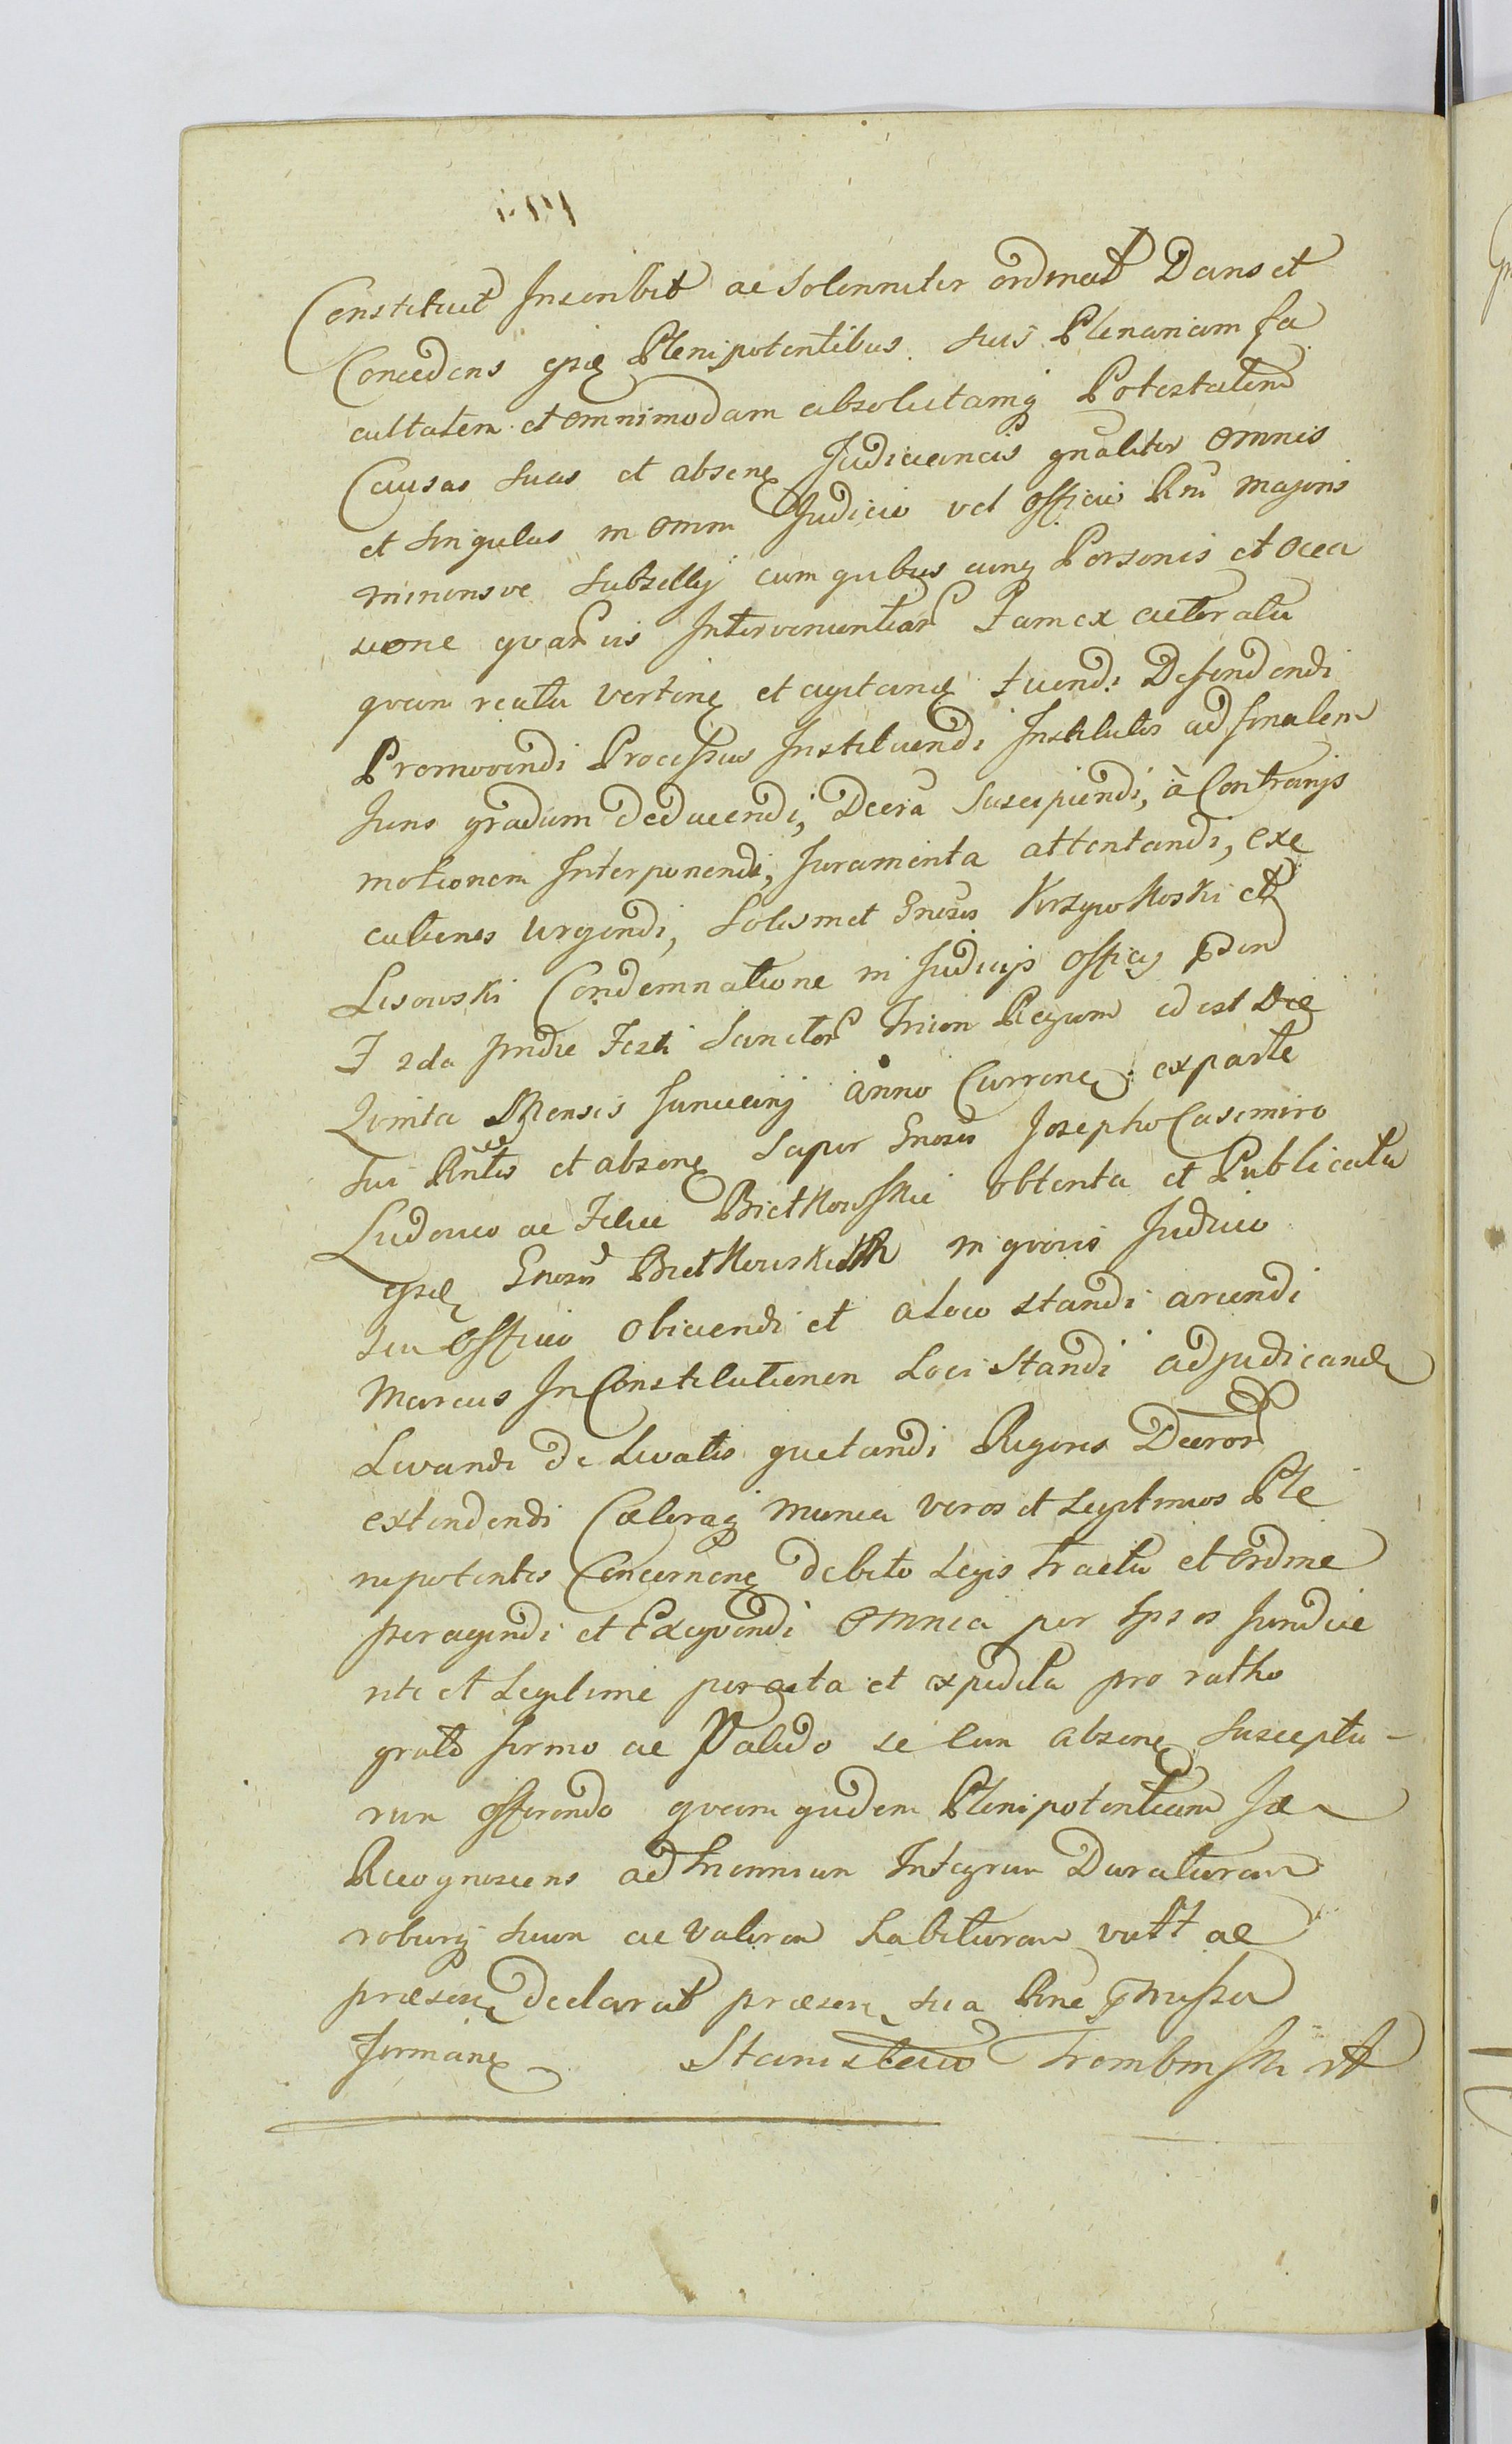 Constituit Inscribit ac Solenniter ordinat Dans et
Concedens ejsdq Plenipotentibus suis Plenariam fa
cultatem et omnimodam absolutamq Potestatem
Causas suas et absenq Judiciarias gnaliter omnes
et singulas in omni Judicio vel officio Rni Majoris
minorisve Subsellij cum quibus cunq Personis et occa
sione quarvis Intervenientiar Tam ex actoratu
quam reatu verten et agitandq tuendi Defendendi
Promovendi Processus Instituendi Institutos ad finalem
Juris gradum deducendi, Decra Suscipiendi, à Contrarijs
motionem Interponendi, Juramenta attentandi, exe
cutiones urgendi, Solismet Gnosis Krzywkoski et
Lisowski Condemnatione in Judicijs officij
F 2da pridie Festi Sanctor Trium Regum id est Die
Quinta Mensis Januarij anno Currenq ex parte
sui Rntis et absenq Super Gnosis Josepho Casimiro
Ludovico ac Felice Bietkowskie obtenta et Publicata
ejsdq Gnosis Bietkowskich in quovis Judicio
seu officio obiiciendi et a loco standi arcendi
Marcas In Constitutionem Loci Standi adjudicandq
Levandi de Levatis quietandi Rigores Decror
extendendi Caeteraq munia veros et Legitimos Ple
nipotentes Concernenq debito Legis tractu et ordine
peragendi et Exequendi omnia per Ipsos Juridice
rite et Legitime peracta et expedita pro ratho
grato firmo ac Valido se Eum absenq suscaptu-
rum offerendo quam quidem Plenipotentiam Ja
Recognoscens ad Triennium Integrum Duraturam
roburq suum ac valorem habituram vult ac
praesenq declarat praesen sua Rne
firmanq Stanisław Trombinski